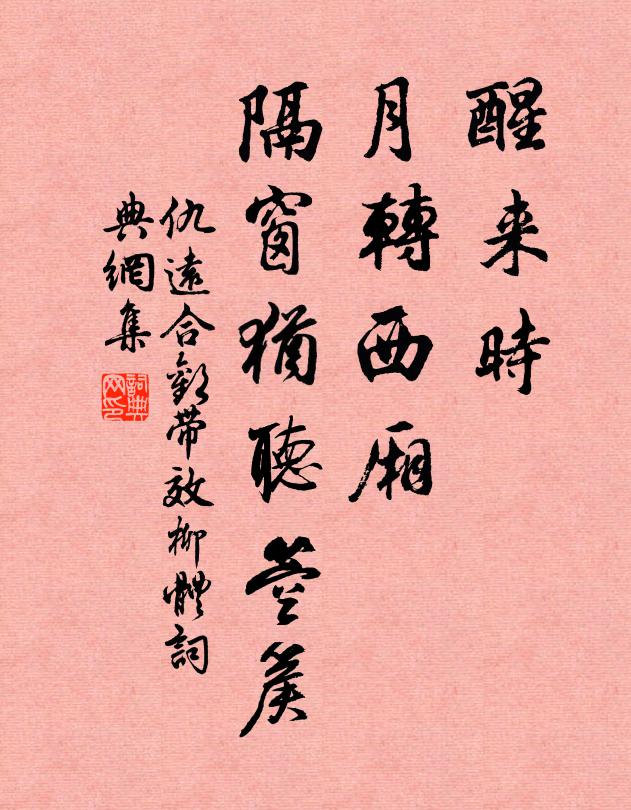 醒来時
月轉西厢
隔窗猶聽箜篌
仇遠合歡帶效柳體詞
典網集
詞典
网印